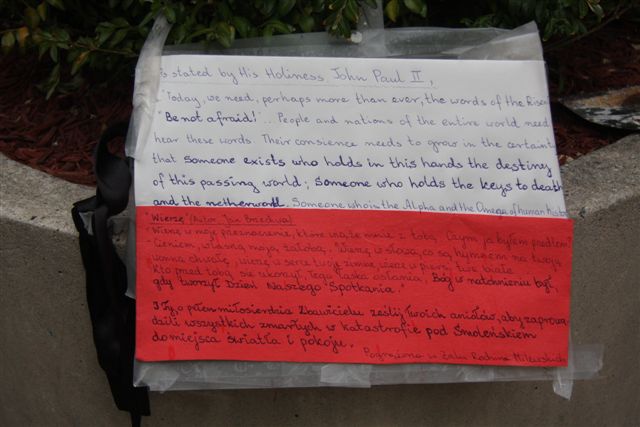 As stated by His Holiness John Paul II,
"Today, we need, perhaps more than ever, the words of the Risen
"Be not afraid!"... People and nations of the entire world need
hear these words. Their consience needs to grow in the certaint
that someone exists who holds in this hands the destiny
of this passing world; someone who holds the keys to death
and the netherworld. Someone who in the Alpha and the Omega of human
"Wierzę" (Autor: Jan Brzechwa)
"Wierzę w moje przeznaczenie, które wiąże mnie z tobą. Czym ja byłem przedtem?
Cieniem, własną moją żałobą. Wierzę w słowa, co są hymnem na twoją
wonną chwałę, wierzę w serce twoje zimne, wierzę w piersi twe białe
kto przed tobą się ukorzył, Tego łaska osłania, Bóg w natchnieniu był,
gdy tworzył Dzień Naszego Spotkania."
I Ty, o pełen miłosierdzia Zbawicielu ześlij Twoich aniołów, aby zaprowa-
dzili wszystkich zmarłych w katastrofie pod Smoleńskiem
do miejsca światła i pokoju.
Pogrążona w żalu Rodzina Milewskich